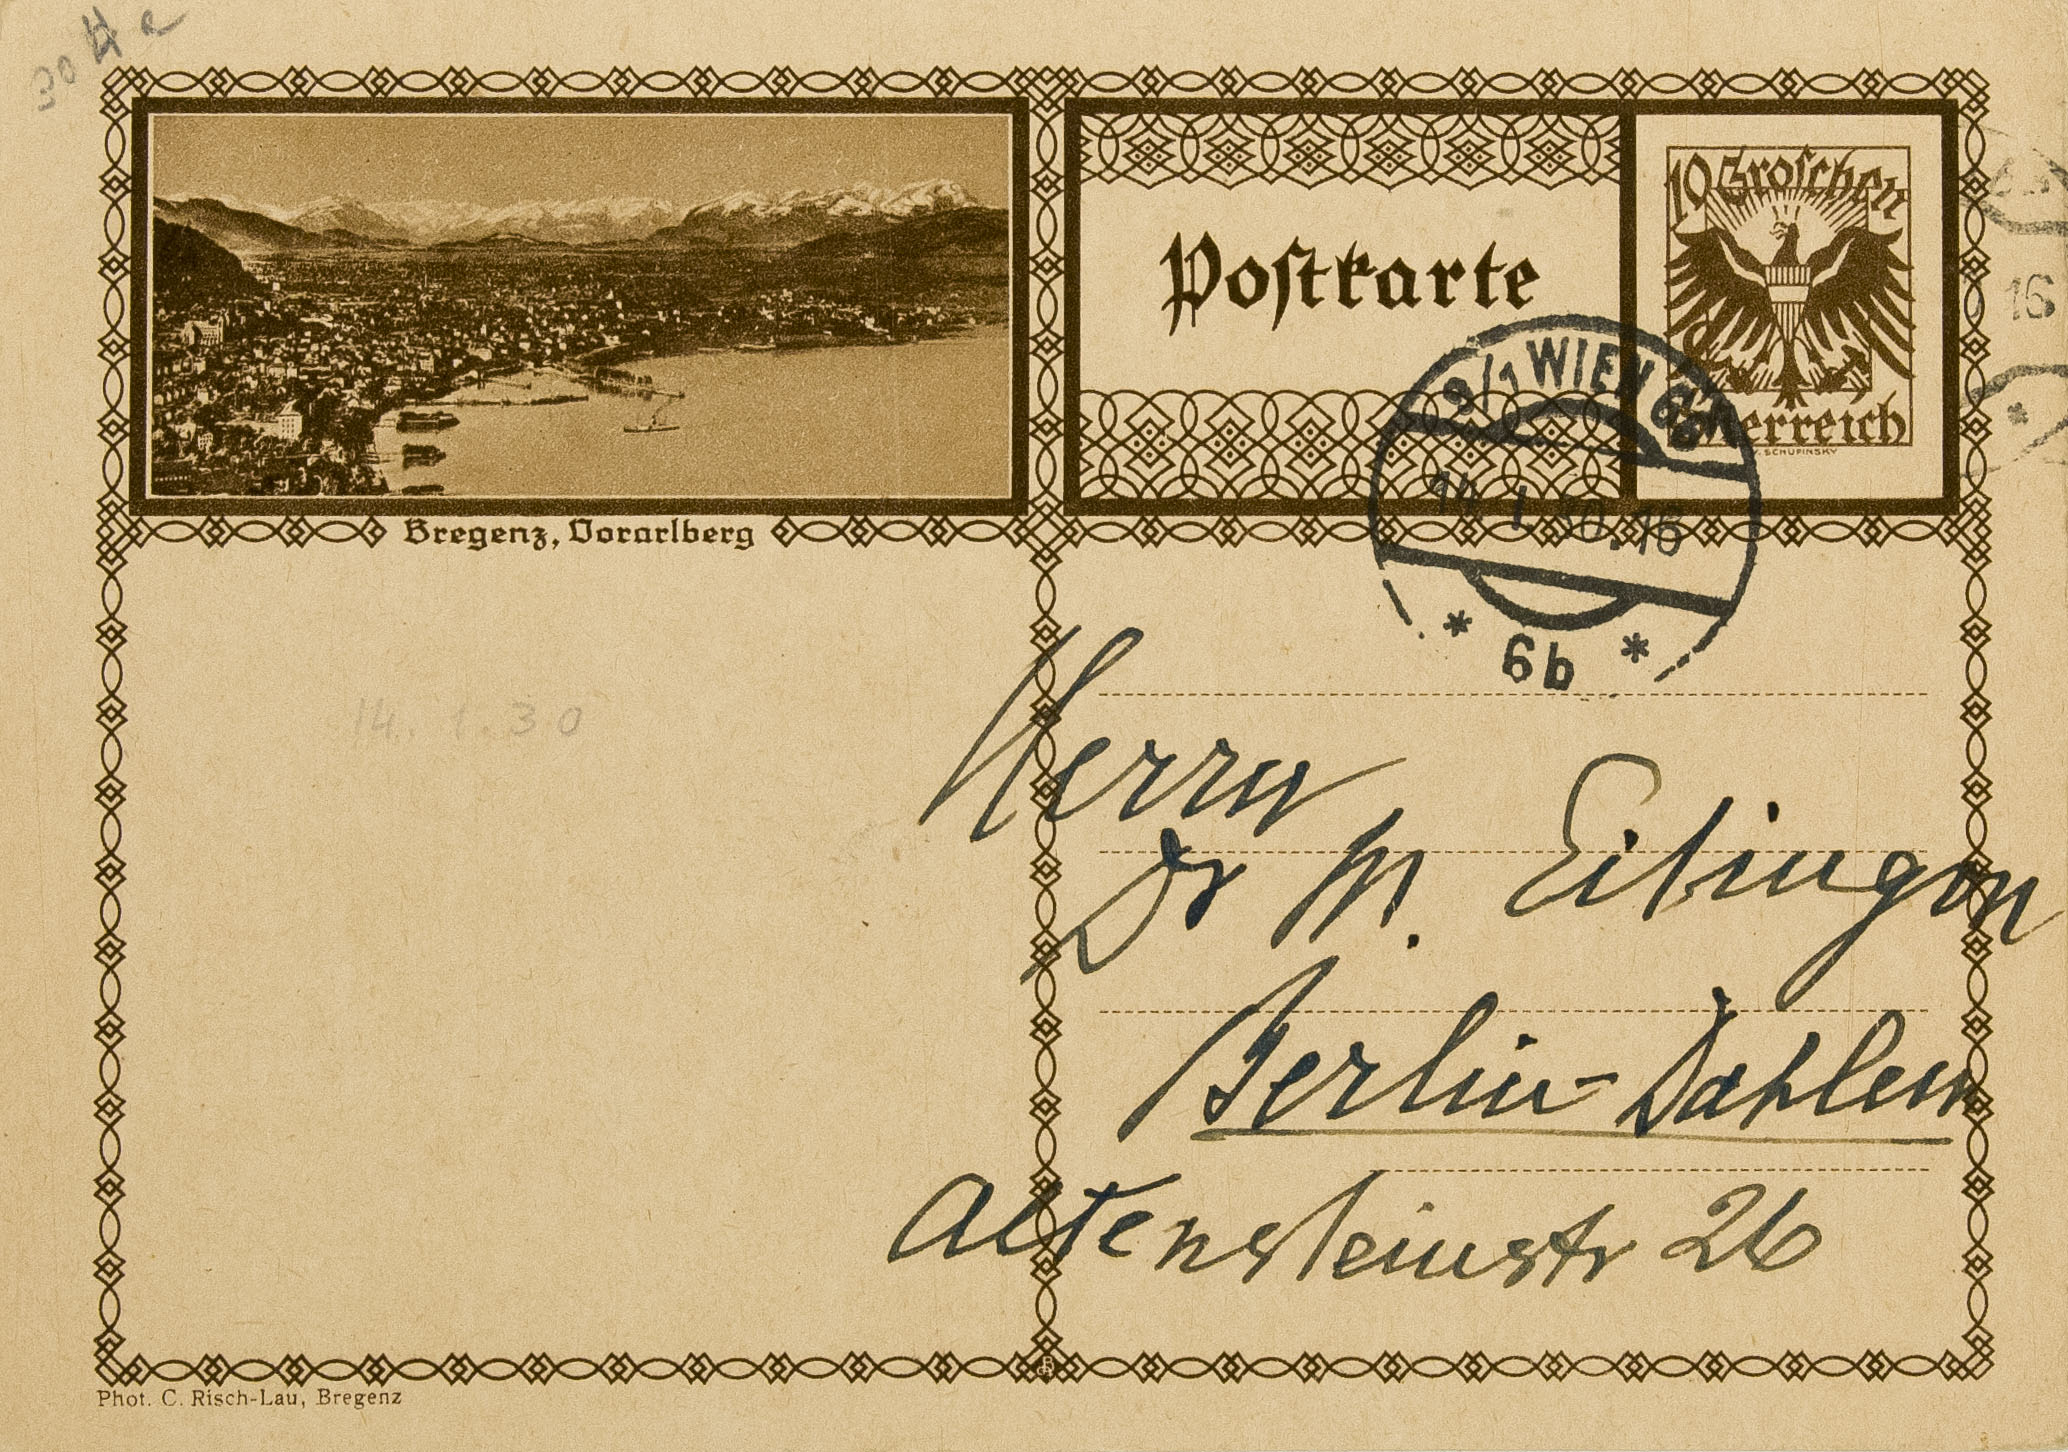 30 H a
10 Groschen
Postkarte
Österreich
SCHUPINSKY
9/1 WIEN 66
14. I. 30. 16
* 6b *
16
*
Bregenz, Vorarlberg
14. 1. 30
Herrn
Dr M. Eitingon
Berlin-Dahlem
Altensteinstr 26
Phot. C. Risch-Lau, Bregenz